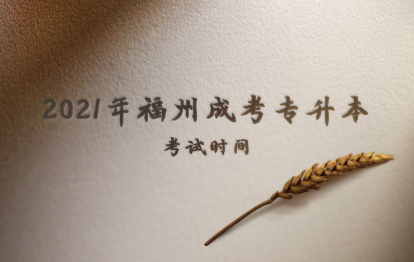 2021年福州成考专升本
考试时间